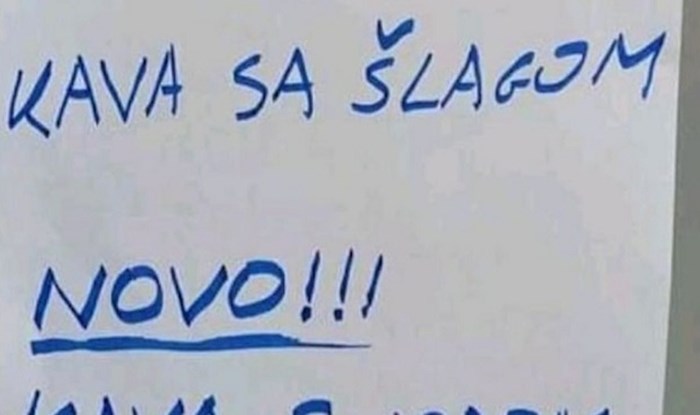 KAVA SA ŠLAGOM
NOVO!!!
KAVA